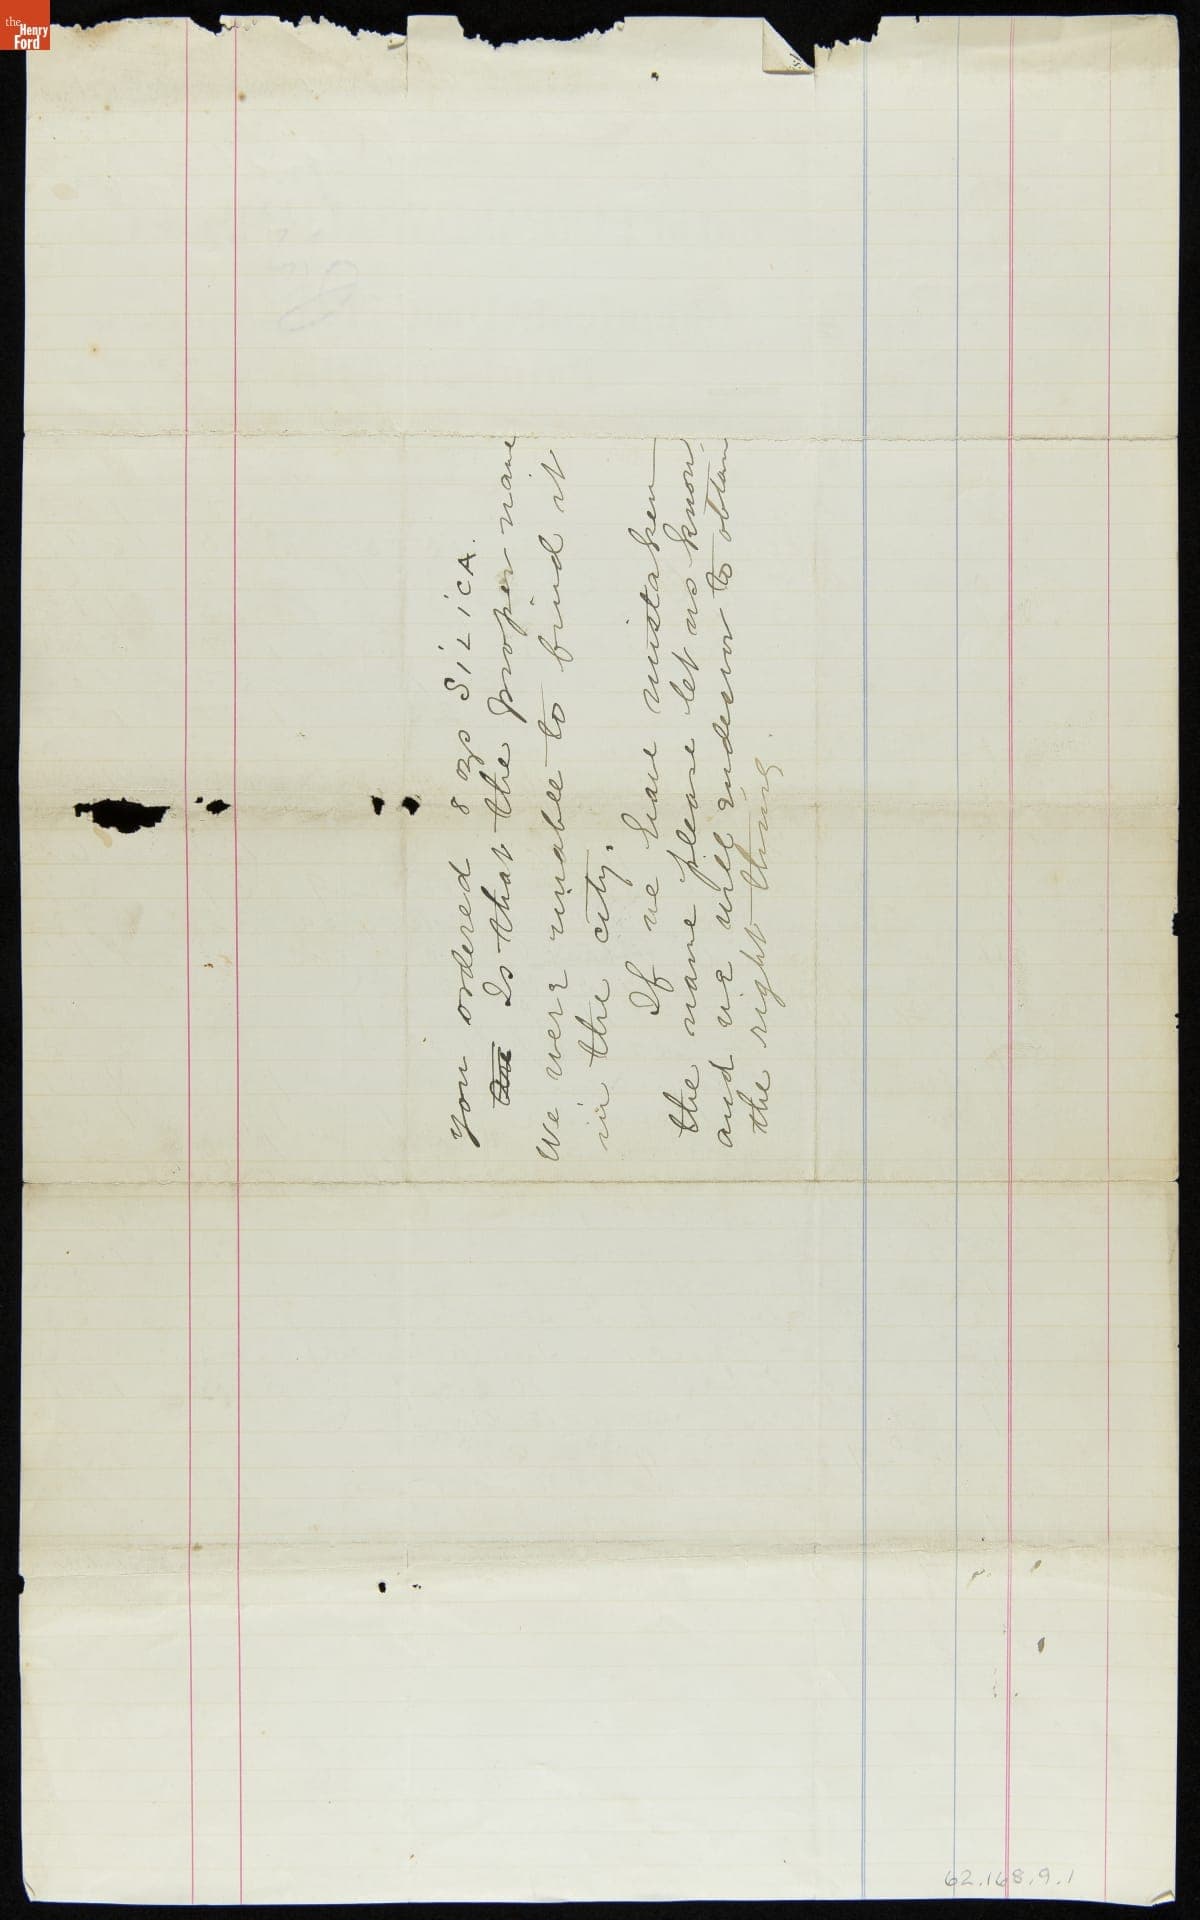 the
Henry
Ford
You ordered 8 ozs SILICA.
Is that the proper name
We were unable to find it
in the city.
If we have mistaken
the name please let us know
and we will endevor to obtain
the right thing.
62.168.9.1